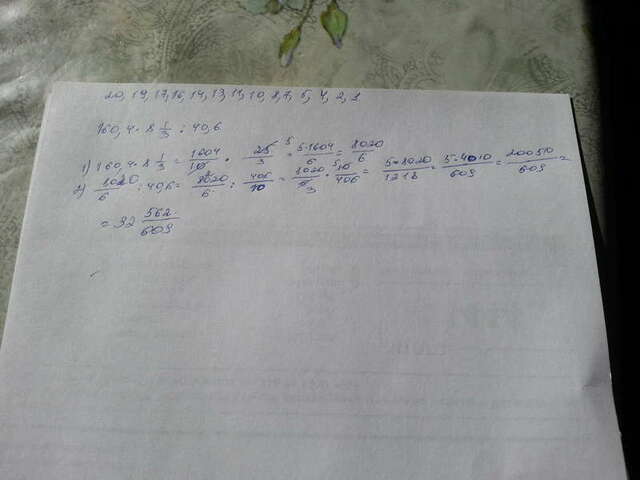 20, 19, 17, 16, 14, 13, 11, 10, 8, 7, 5, 4, 2, 1
160,4 · 8 1/3 : 40,6
1) 160,4 · 8 1/3 = 1604/10 · 25/3 5 = 5·1604/6 = 8020/6
2) 8020/6 : 40,6 = 8020/6 : 406/10 = 8020/6 3 · 5 10/406 = 5·8020/1218 = 5·4010/609 = 20050/609 =
= 32 562/609